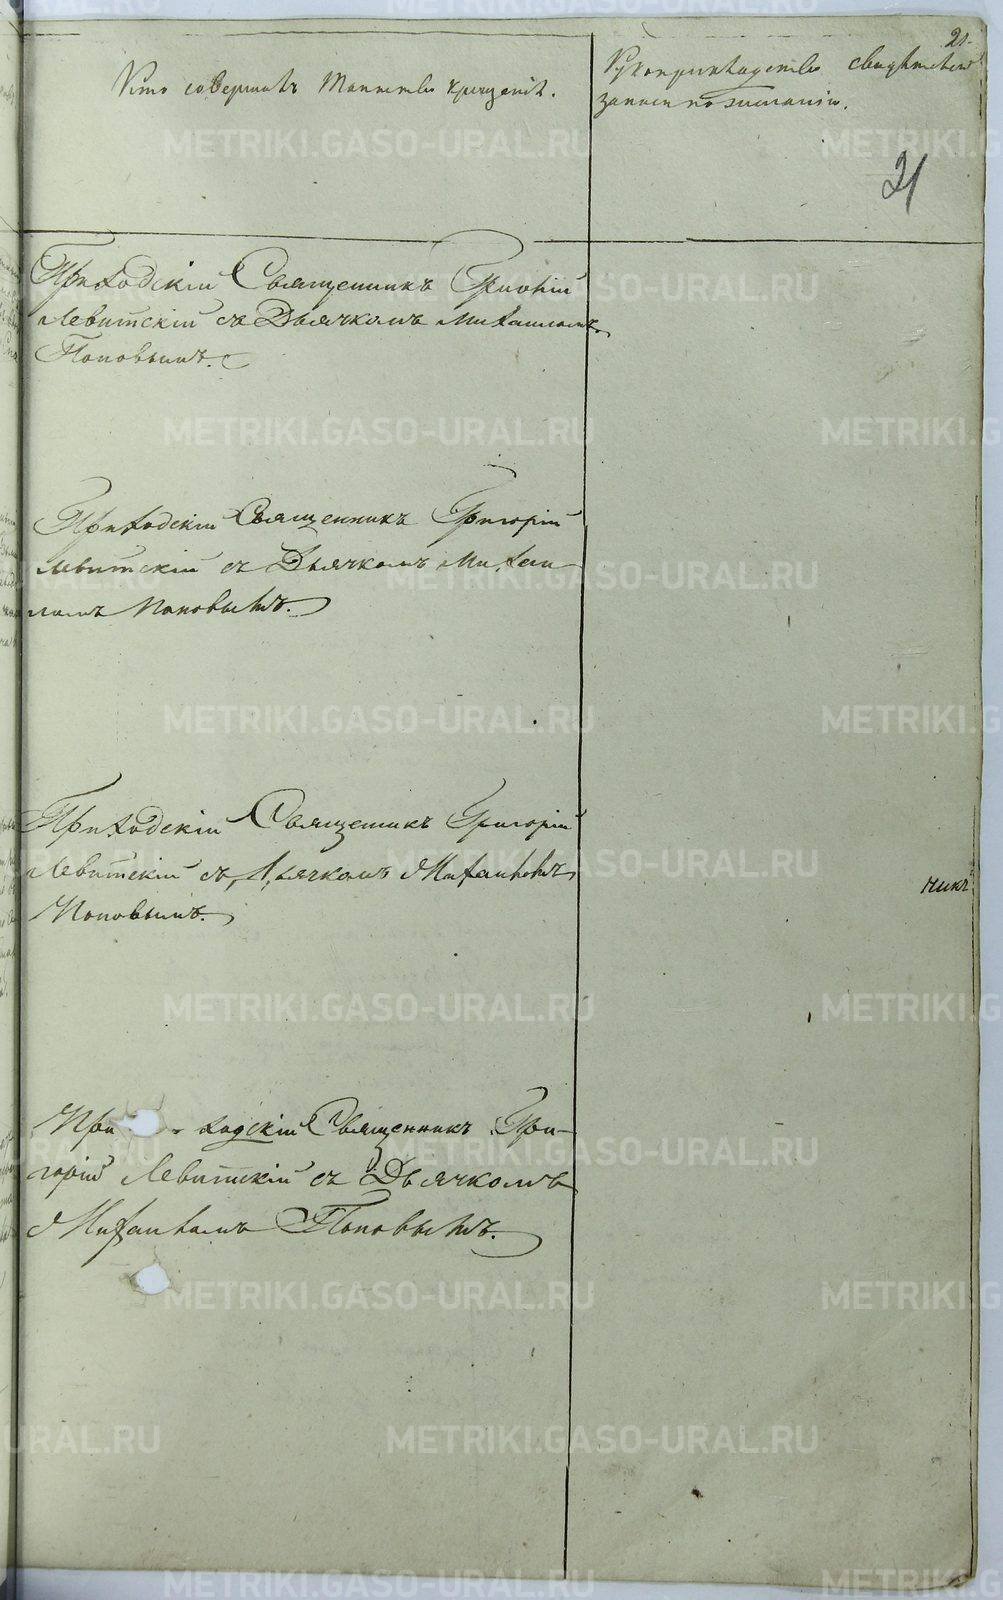 21.
Кто совершалъ Таинство крещенія.
Рукоприкладство свидѣтелей
записи по желанію.
21
Приходскій Священникъ Григорій
Левитскій съ Дьячкомъ Михаиломъ
Поповымъ.
Приходскій Священникъ Григорій
Левитскій съ Дьячкомъ Михаи-
ломъ Поповымъ.
Приходскій Священникъ Григорій
Левитскій съ Дьячкомъ Михаиломъ
Поповымъ.
никъ
При- ходскій Священникъ Гри-
горій Левитскій съ Дьячкомъ
Михаиломъ Поповымъ.
METRIKI.GASO-URAL.RU